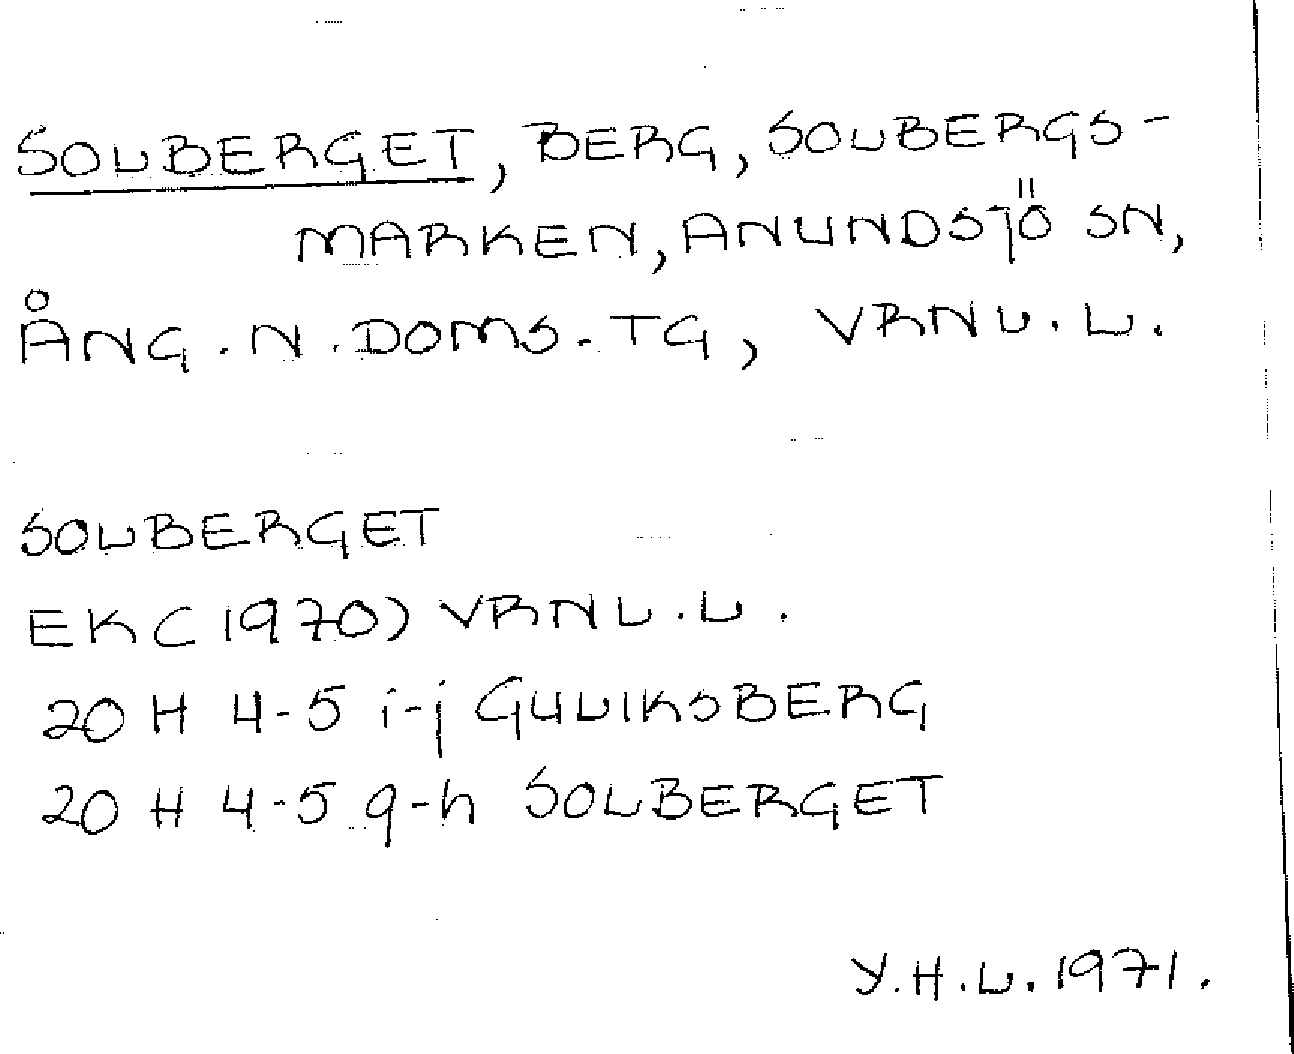 SOLBERGET, BERG, SOLBERGS-
MARKEN, ANUNDSJÖ SN,
ÅNG. N. DOMS. TG, VRNL. L.
SOLBERGET
EK (1970) VRNL. L.
20 H 4-5 i-j GULIKSBERG
20 H 4-5 g-h SOLBERGET
Y. H. L. 1971.